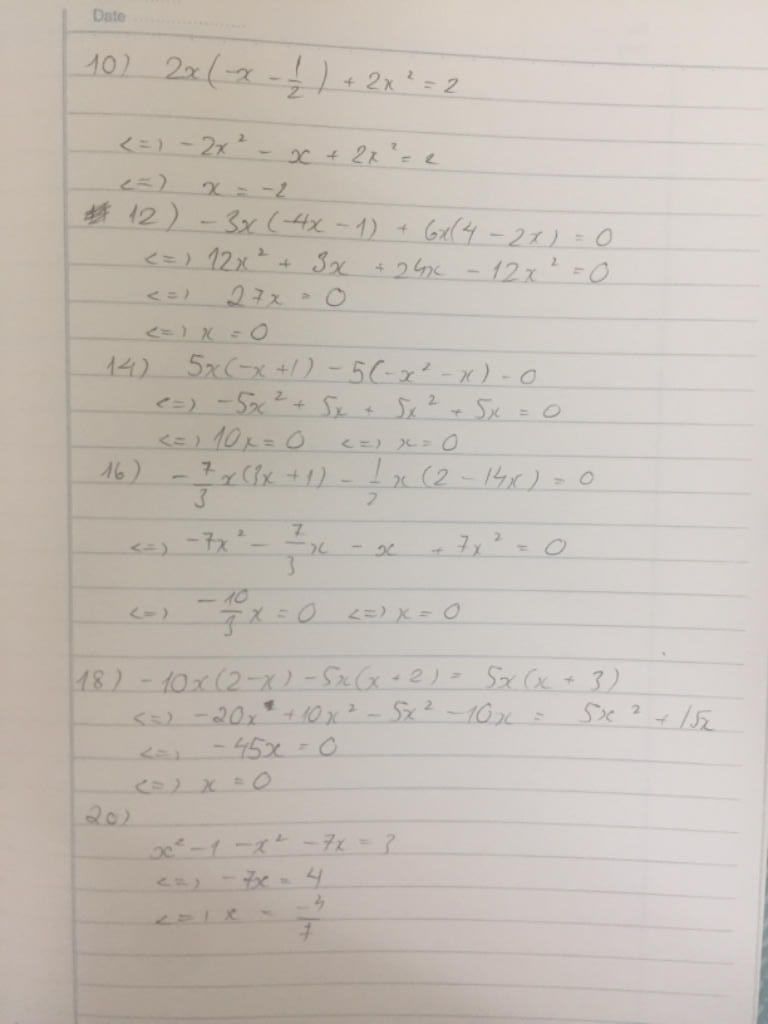 Date
10) 2x(-x - 1/2) + 2x² = 2
<=> -2x² - x + 2x² = 2
<=> x = -2
12) -3x(-4x - 1) + 6x(4 - 2x) = 0
<=> 12x² + 3x + 24x - 12x² = 0
<=> 27x = 0
<=> x = 0
14) 5x(-x + 1) - 5(-x² - x) = 0
<=> -5x² + 5x + 5x² + 5x = 0
<=> 10x = 0 <=> x = 0
16) -7/3 x(3x + 1) - 1/2 x(2 - 14x) = 0
<=> -7x² - 7/3 x - x + 7x² = 0
<=> -10/3 x = 0 <=> x = 0
18) -10x(2 - x) - 5x(x + 2) = 5x(x + 3)
<=> -20x + 10x² - 5x² - 10x = 5x² + 15x
<=> -45x = 0
<=> x = 0
20)
x² - 1 - x² - 7x = 3
<=> -7x = 4
<=> x = -4/7